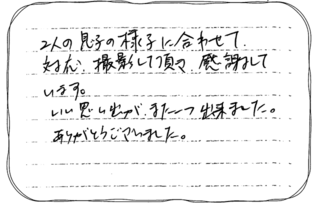 2人の息子の様子に合わせて
対応、撮影して頂き感謝して
います。
いい思い出が、また一つ出来ました。
ありがとうございました。